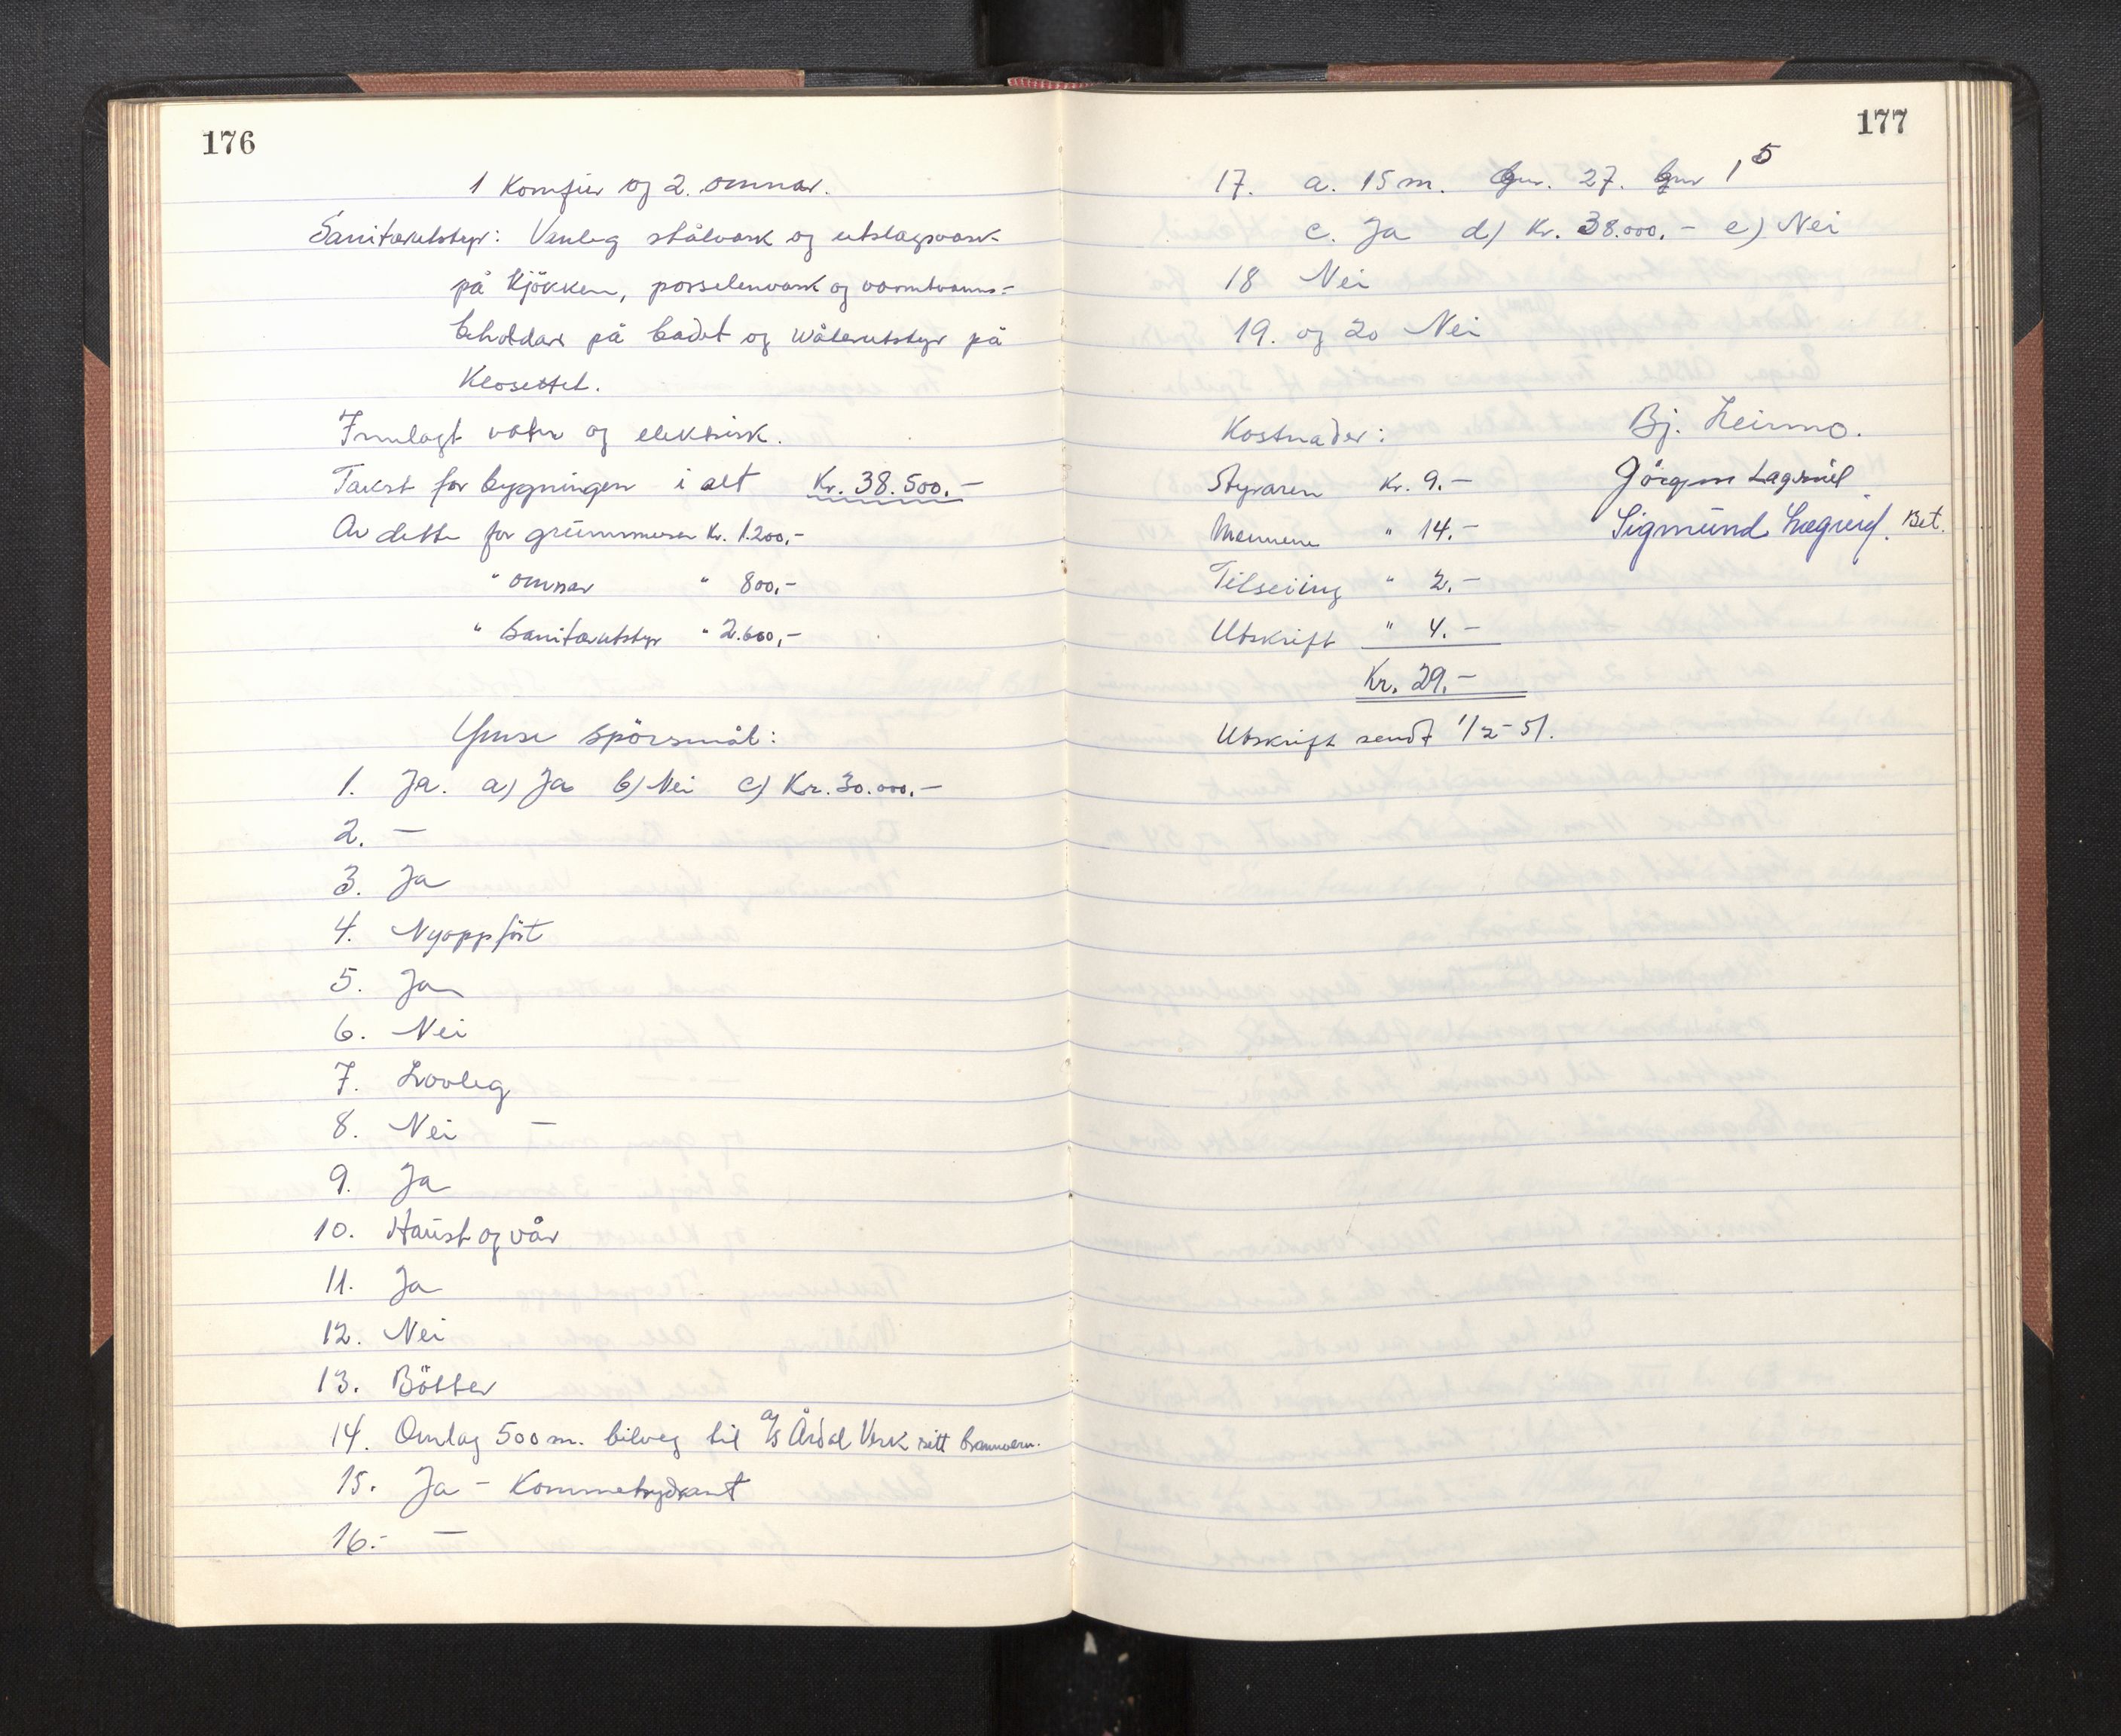 176
1 Komfur og 2. omnar.
Sanitærutstyr: Vanleg stålvask og utslagsvask
på kjökken, porselenvask og varmtvanns-
beholdar på badet og våterutstyr på
Klosettet.
Innlagt vatn og elektrisk.
Takst for bygningen i alt Kr. 38.500,-
Av dette for grunnmuren Kr. 1.200,-
" omnar " 800,-
" Sanitærutstyr " 2.600,-
Ymse spörsmål:
1. Ja. a) Ja b) Nei c) Kr. 30.000,-
2. —
3. Ja
4. Nyoppfört
5. Ja
6. Nei
7. Lovleg
8. Nei —
9. Ja
10. Haust og vår
11. Ja
12. Nei
13. Bötter
14. Omlag 500 m. bilveg til a/s Årdal Verk sitt brannvern.
15. Ja - Kommehydrant
16.- —
177
17. a. 15 m. Gnr. 27. bnr 1 5
c. Ja d) Kr. 38.000.- e) Nei
18 Nei
19. og 20 Nei
Kostnader: Bj. Leirmo.
Styraren Kr. 9.- Jörgen Lægreid
Mennene " 14.- Sigmund Lægreid. Bet.
Tilseiing " 2.-
Utskrift " 4.-
Kr. 29.-
Utskrift sendt 1/2-51.